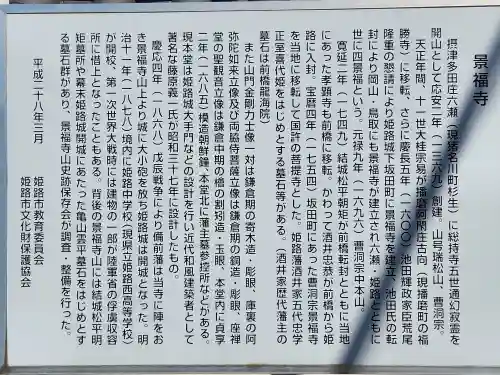 景福寺
摂津多田庄六瀬（現猪名川町杉生）に総持寺五世通幻寂霊を
開山として応安二年（一三六九）創建。山号瑞松山、曹洞宗。
天正年間、十一世大桂宗易が播磨河間庄古向（現播磨町の福
勝寺）に移転、さらに慶長五年（一六〇〇）池田輝政家臣荒尾
隆重の懇請により姫路城下坂田町に景福寺を建立、池田氏の転
封により岡山・鳥取にも景福寺が建立され六瀬・姫路とともに
世に四景福という。元禄九年（一六九六）曹洞宗中本山。
寛延二年（一七四九）結城松平朝矩が前橋転封とともに当地
にあった孝顕寺も前橋に移転。かわって酒井忠恭が前橋から姫
路に入封。宝暦四年（一七五四）坂田町にあった曹洞宗景福寺
を当地に移転して国許の菩提寺とした。姫路藩酒井家五代忠学
正室喜代姫をはじめとする墓石等がある。（酒井家歴代藩主の
墓石は前橋龍海院）
また山門の金剛力士像一対は鎌倉期の寄木造・彫眼、庫裏の阿
弥陀如来立像及び両脇侍菩薩立像は鎌倉期の銅造・彫眼、座禅
堂の聖観音立像は鎌倉中期の檜の割矧造・玉眼、本堂内に貞享
二年（一六八五）模造朝鮮鐘、本堂北に藩主墓参控所などがある。
現本堂は姫路城大手門などの設計を行い近代和風建築者として
著名な藤原義一氏が昭和三十七年に設計したもの。
慶応四年（一八六八）戊辰戦争により備前藩は当寺に陣をお
き景福寺山上より城に大小砲を放ち姫路城は開城となった。明
治十一年（一八七八）境内に姫路中学校（現県立姫路西高等学校）
が開校、第一次世界大戦時には建物の一部が陸軍省の俘虜収容
所に借上となったこともある。背後の景福寺山には結城松平明
矩墓所や幕末姫路城開城にあたった亀山雲平墓石をはじめとす
る墓石群があり、景福寺山史跡保存会が調査・整備を行った。
平成二十八年三月
姫路市教育委員会
姫路市文化財保護協会